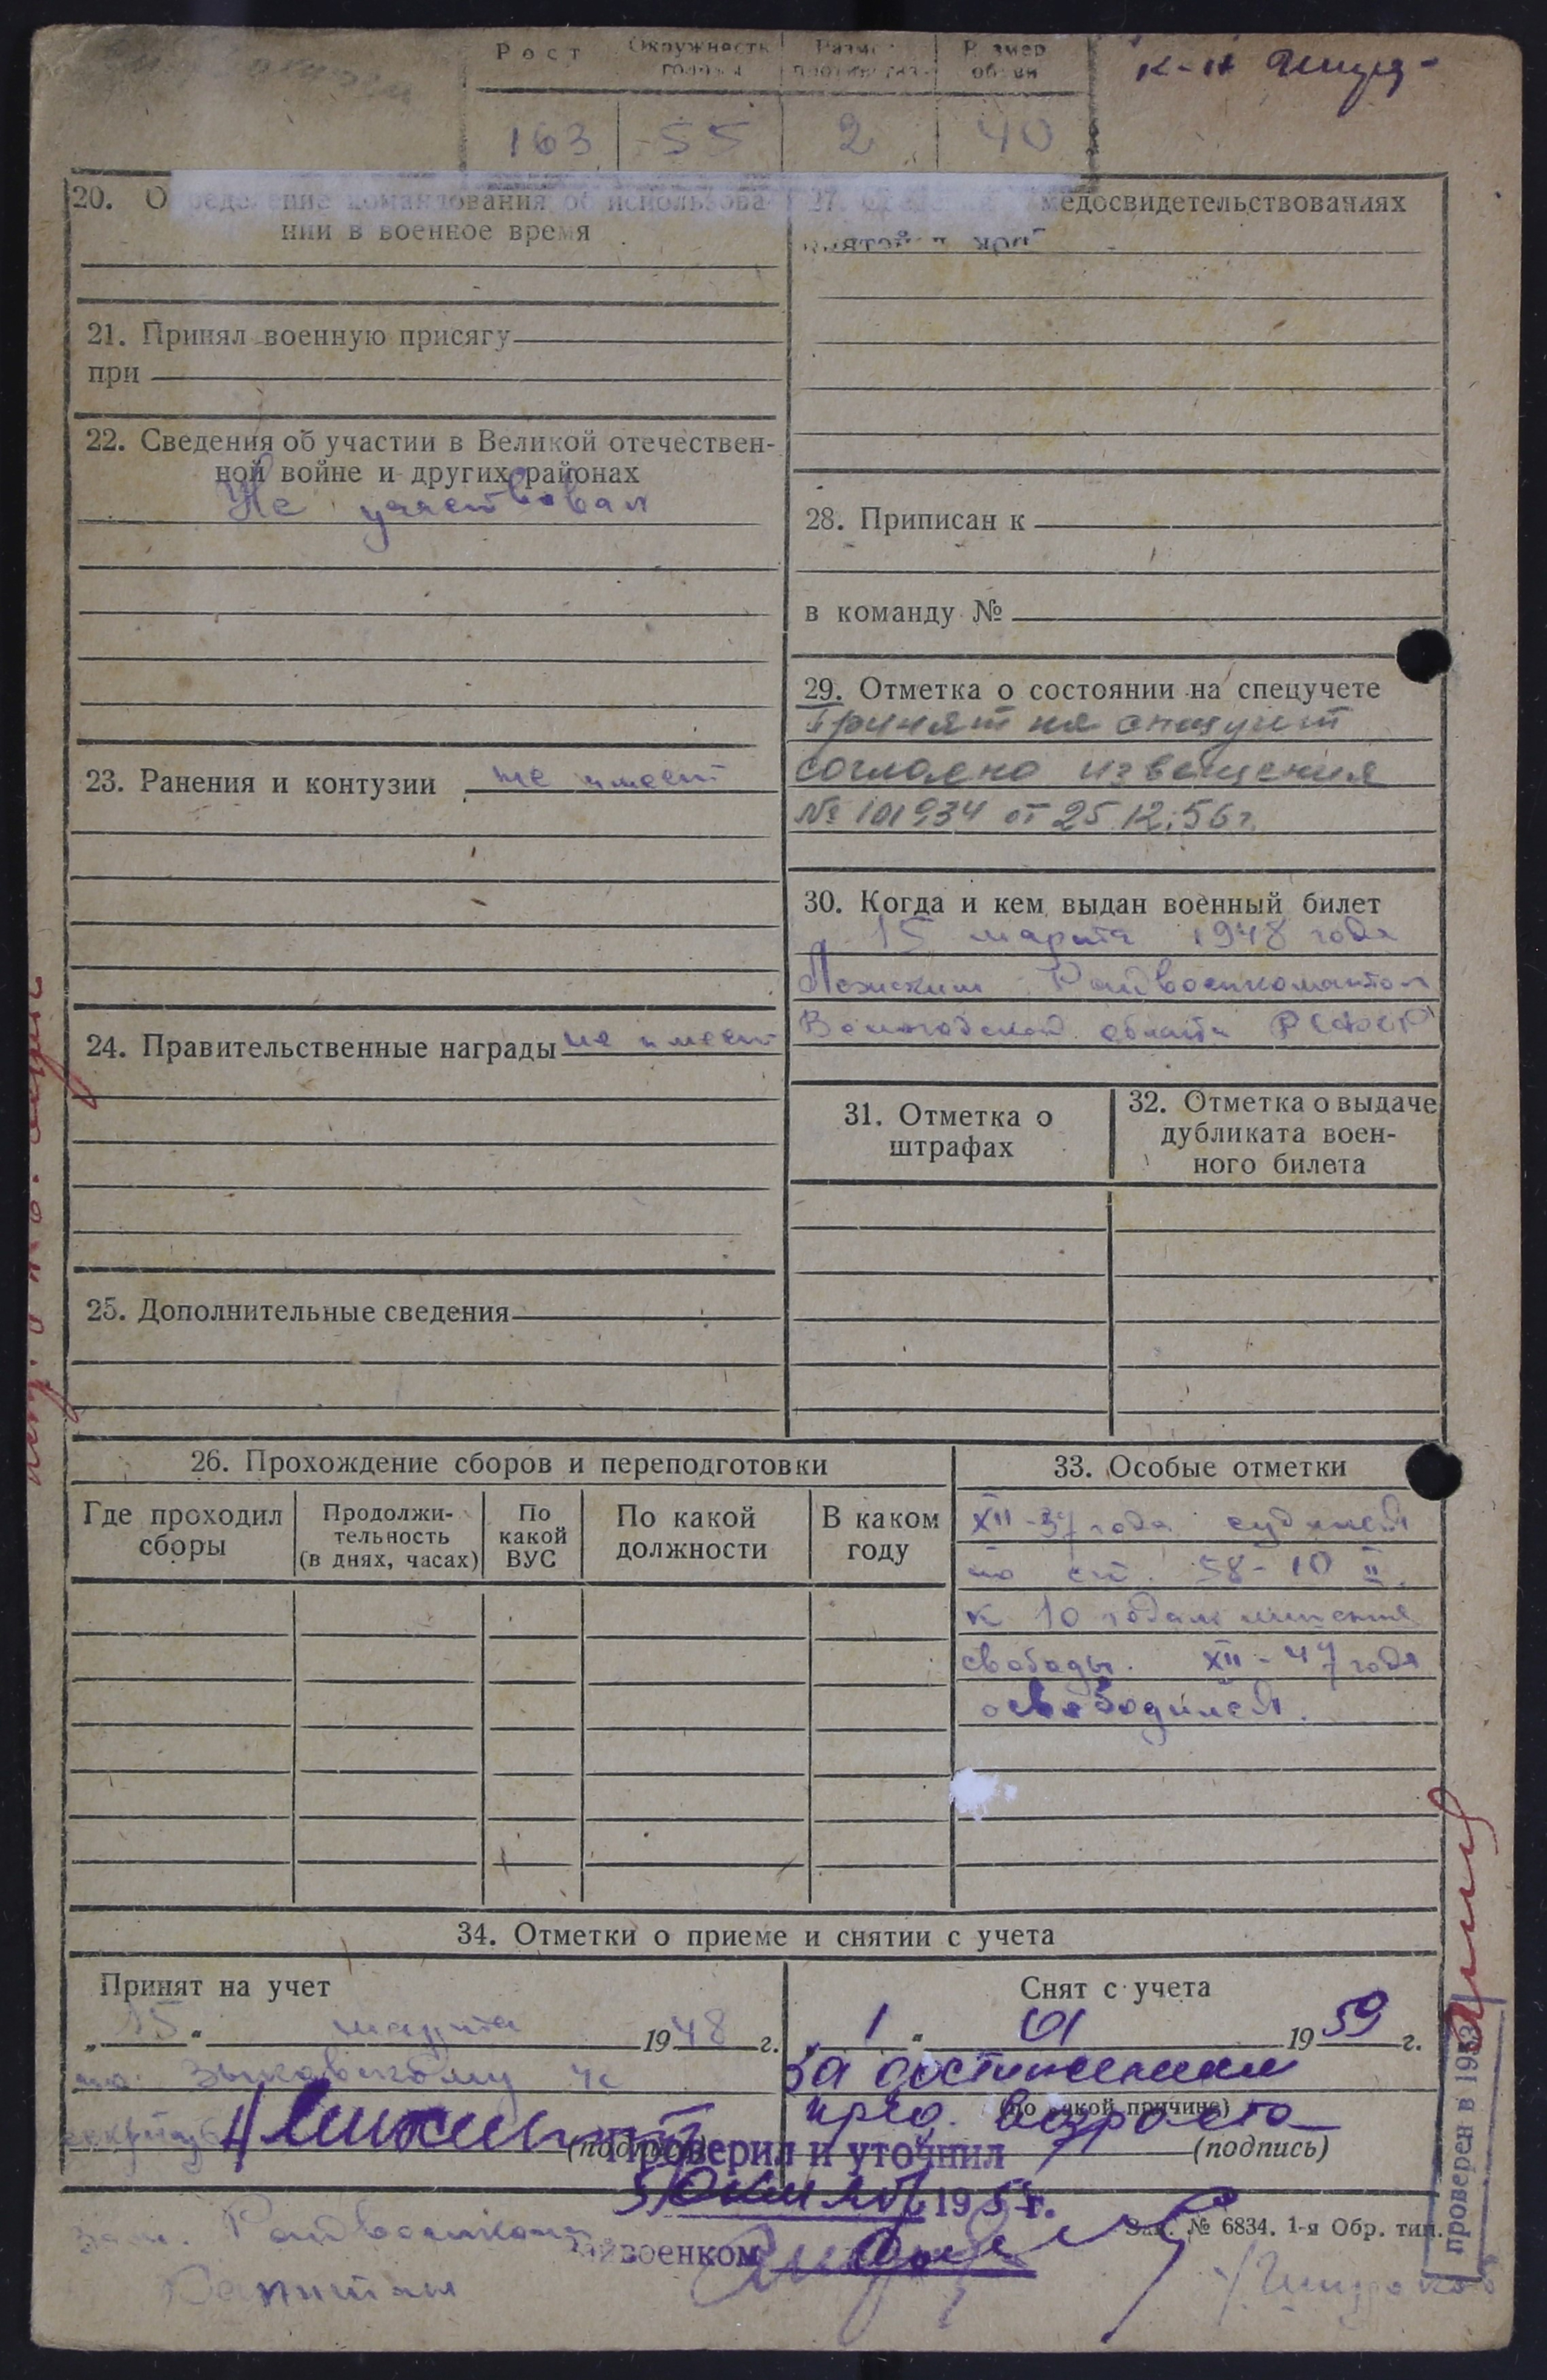 Рост
Окружность головы
Размер
Размер обуви
163
55
2
40
20. Определение командования об использова-
нии в военное время
21. Принял военную присягу
при
22. Сведения об участии в Великой отечествен-
ной войне и других районах
Не участвовал
23. Ранения и контузии не имеет
24. Правительственные награды не имеет
25. Дополнительные сведения
27. медосвидетельствованиях
28. Приписан к
в команду №
29. Отметка о состоянии на спецучете
Принят на спецучет
согласно извещения
№ 101934 от 25.12.56 г.
30. Когда и кем выдан военный билет
15 марта 1948 года
Райвоенкоматом
Вологодской области РСФСР
31. Отметка о
штрафах
32. Отметка о выдаче
дубликата воен-
ного билета
26. Прохождение сборов и переподготовки
Где проходил
сборы
Продолжи-
тельность
(в днях, часах)
По
какой
ВУС
По какой
должности
В каком
году
33. Особые отметки
XII-37 года судился
по ст. 58-10 II
к 10 годам лишения
свободы. XII-47 года
освободился.
34. Отметки о приеме и снятии с учета
Принят на учет
„15" марта 1948 г.
по Зыковскому
(подпись)
Снят с учета
„1" 01 1959 г.
за достижением
пред. возраста
(по какой причине)
(подпись)
Проверил и уточнил
195 г.
военком
Зак. № 6834. 1-я Обр. тип.
зам. Райвоенкома
Капитан
проверен в 195